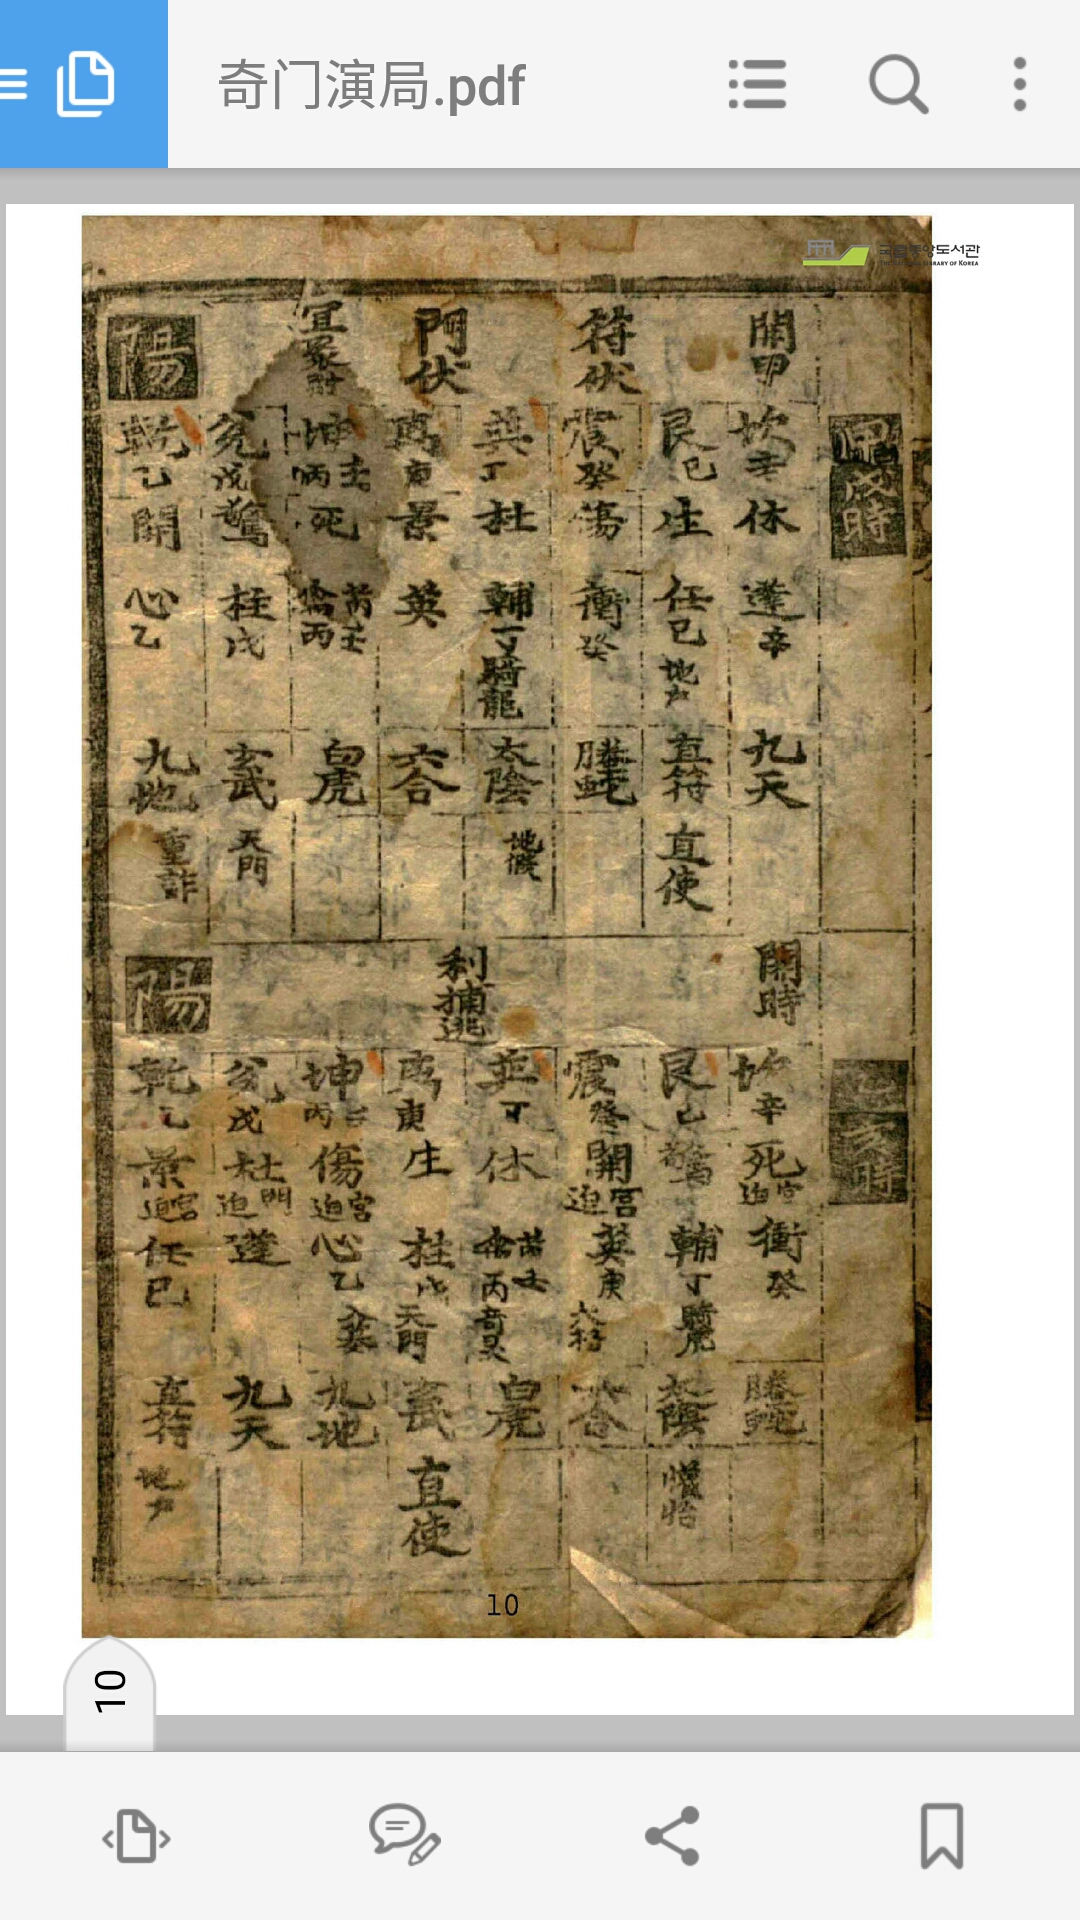 奇门演局.pdf
국립중앙도서관
THE NATIONAL LIBRARY OF KOREA
戊時
開甲
坎 壬 休 蓬 辛 九天
艮 己 生 任 己 地戶 直符 直使
符伏
震 癸 傷 衝 癸 螣蛇
巽 丁 杜 輔 丁 騎龍 太陰 地假
門伏
离 庚 景 英 六合
坤 壬 丙 死 芮 壬 禽 丙 白虎
宜
兌 戊 驚 柱 戊 玄武 天門
乾 乙 開 心 乙 九地 重詐
陽
亥時
開時
坎 辛 死 宮迫 衝 癸 螣蛇
艮 己 驚 輔 丁 太陰
震 癸 開 宮迫 英 庚 六合
巽 丁 休 芮 壬 禽 丙 白虎
利捕逃
离 庚 生 柱 戊 天門 玄武 直使
坤 丙 傷 宮迫 心 乙 入墓 九地
兌 戊 杜 門迫 蓬 九天
乾 乙 景 宮迫 任 己 直符 地戶
陽
10
10